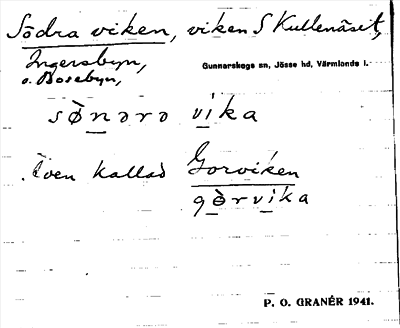 Södra viken, viken S Kullenäset,
Ingersbyn,
o. Bosebyn,
Gunnarskogs sn, Jösse hd, Värmlands l.
sø̀nərə vika
Även kallad Gorviken
gòrvika
P. O. GRANÉR 1941.